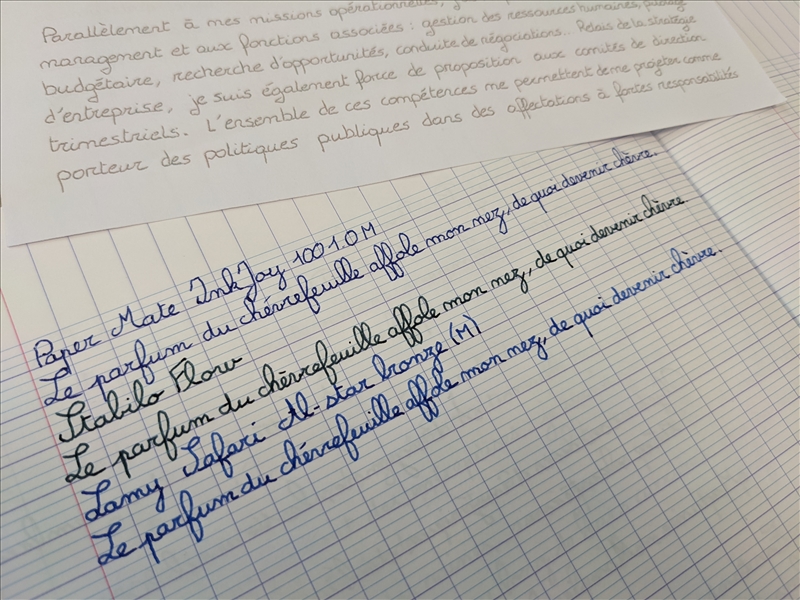 Parallèlement à mes missions opérationnelles,
management et aux fonctions associées : gestion des ressources humaines, pilotage
budgétaire, recherche d'opportunités, conduite de négociations.. Relais de la stratégie
d'entreprise, je suis également force de proposition aux comités de direction
trimestriels. L'ensemble de ces compétences me permettent de me projeter comme
porteur des politiques publiques dans des affectations à fortes responsabilités
Paper Mate InkJoy 100 1.0 M
Le parfum du chèvrefeuille affole mon nez, de quoi devenir chèvre.
Stabilo Flow
Le parfum du chèvrefeuille affole mon nez, de quoi devenir chèvre.
Lamy Safari Al-star bronze (M)
Le parfum du chèvrefeuille affole mon nez, de quoi devenir chèvre.